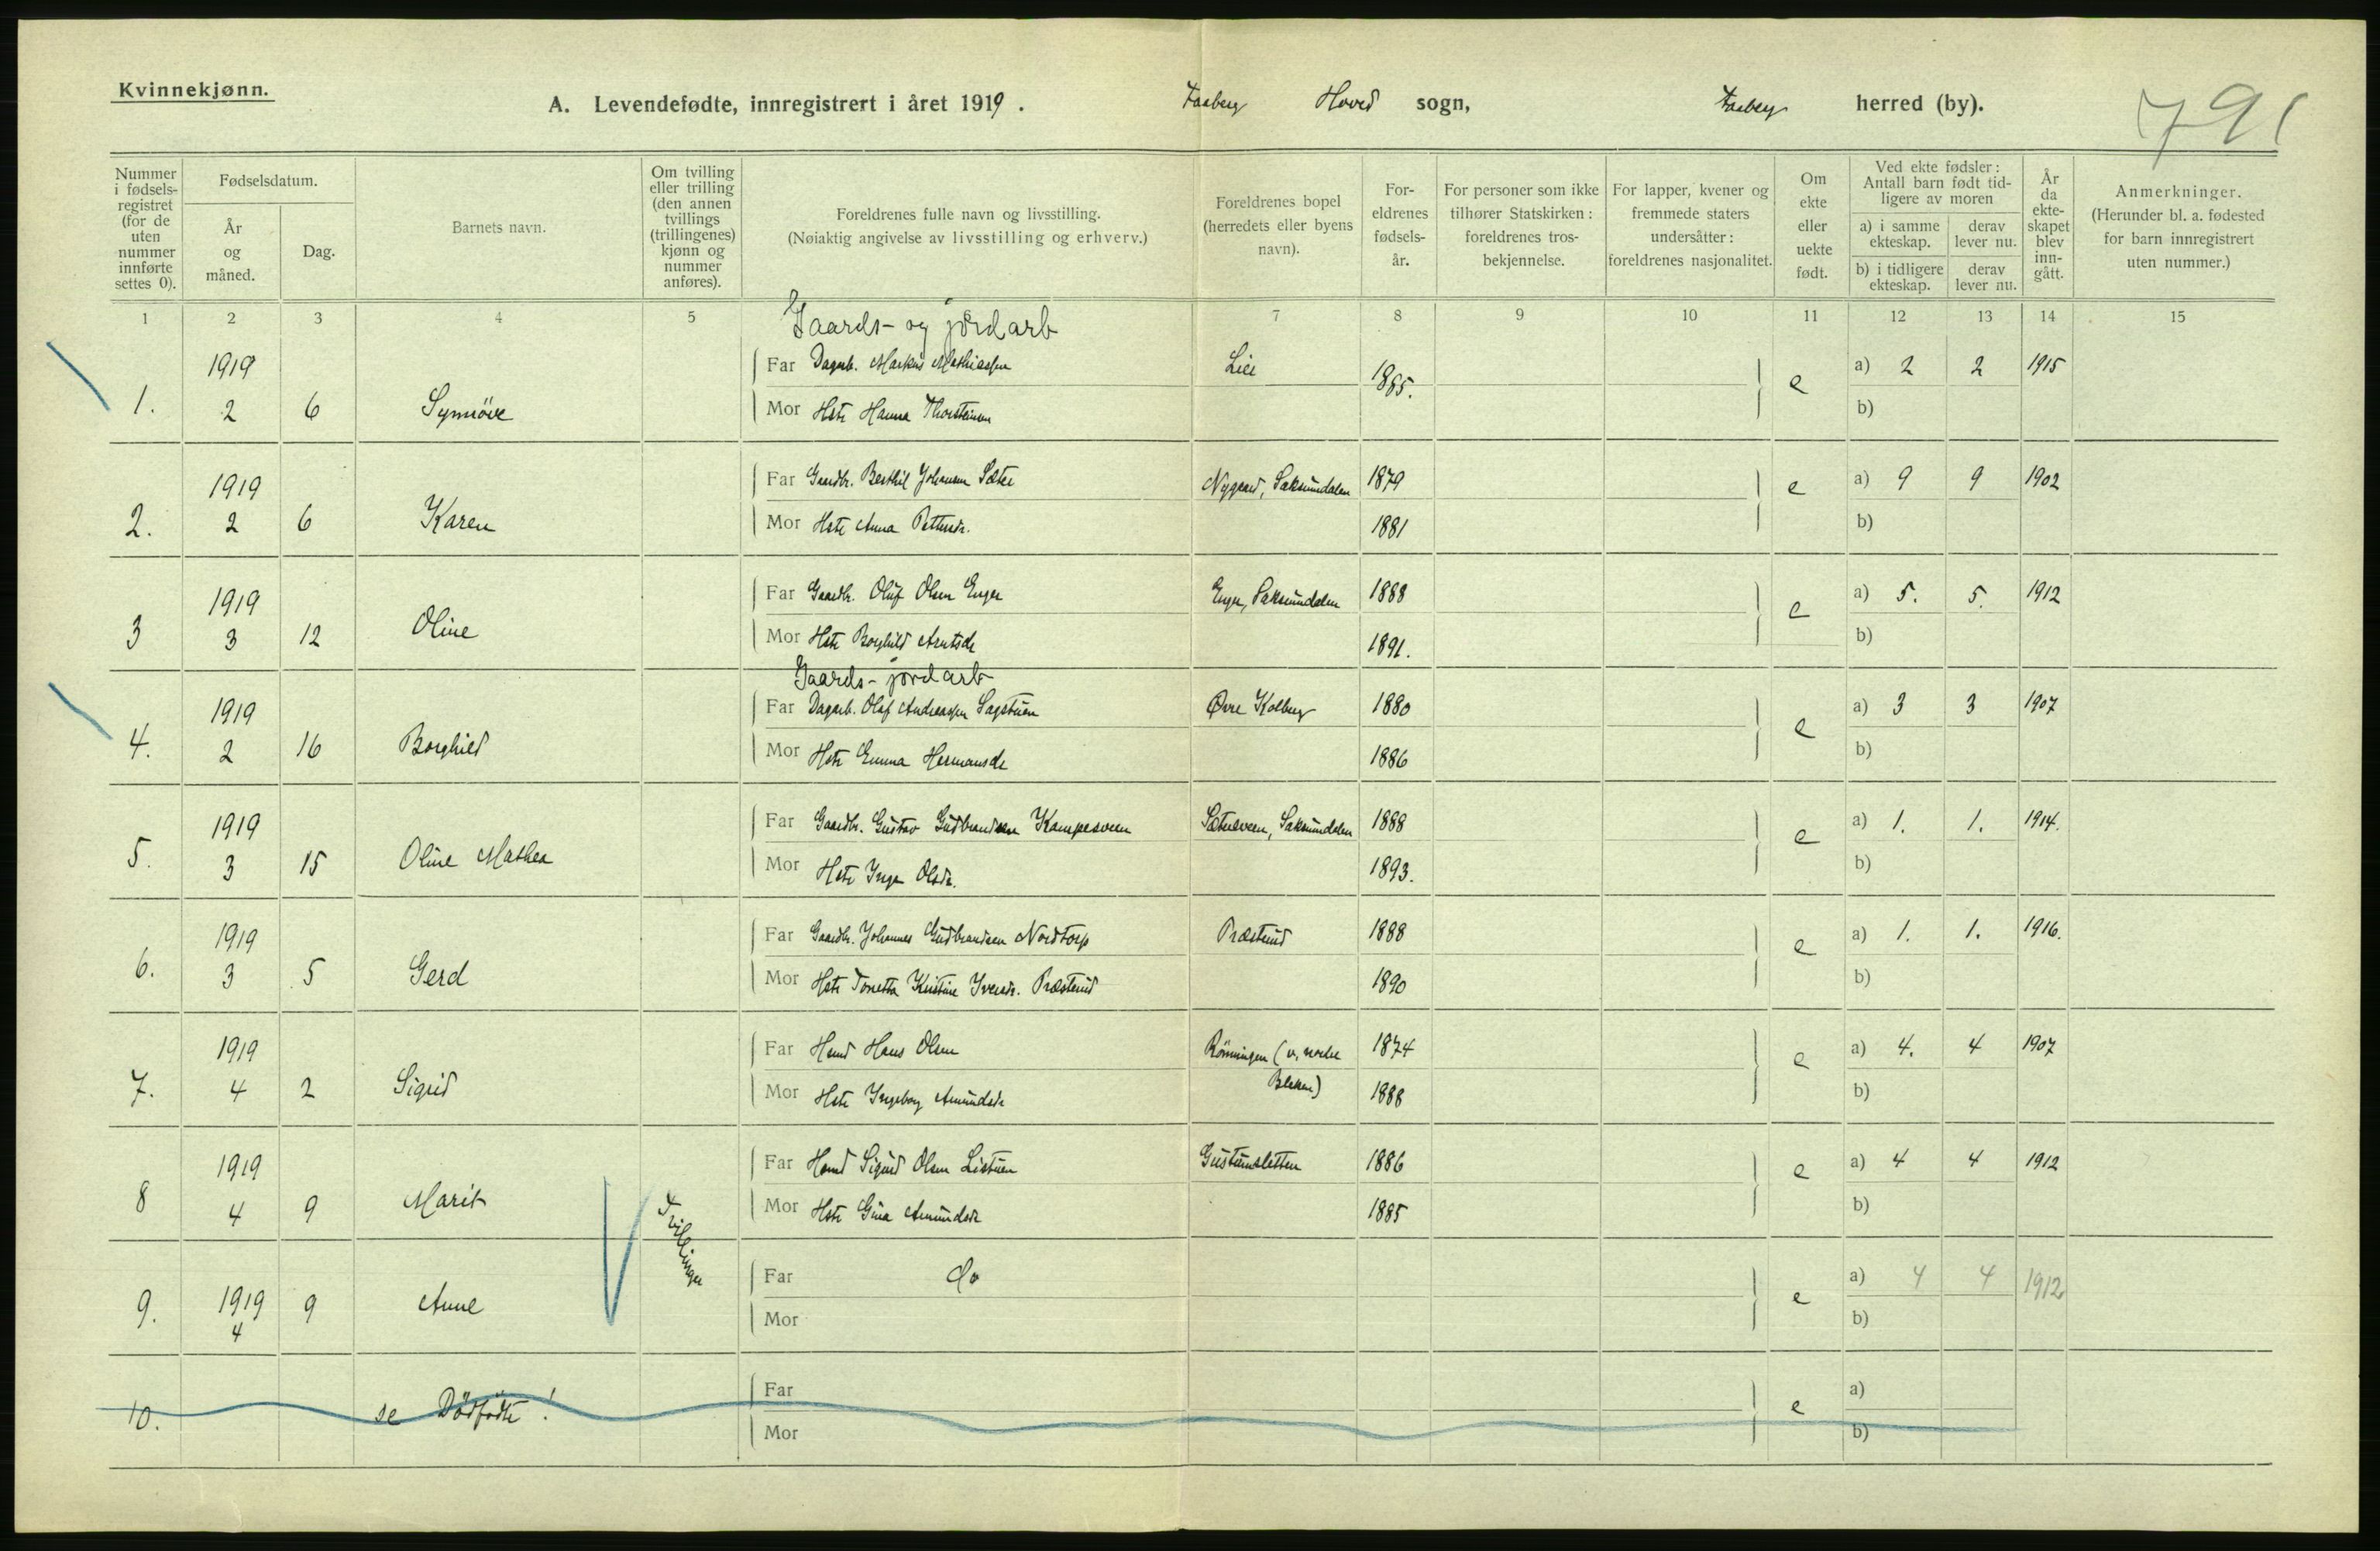 Kvinnekjønn.
A. Levendefødte, innregistrert i året 1919. Faaberg Hoved sogn, Faaberg herred (by).
791
Nummer i fødselsregistret (for de uten nummer innførte settes 0).
Fødselsdatum.
År og måned.
Dag.
Barnets navn.
Om tvilling eller trilling (den annen tvillings (trillingenes) kjønn og nummer anføres).
Foreldrenes fulle navn og livsstilling.
(Nøiaktig angivelse av livsstilling og erhverv.)
Foreldrenes bopel (herredets eller byens navn).
Foreldrenes fødselsår.
For personer som ikke tilhører Statskirken: foreldrenes trosbekjennelse.
For lapper, kvener og fremmede staters undersåtter: foreldrenes nasjonalitet.
Om ekte eller uekte født.
Ved ekte fødsler: Antall barn født tidligere av moren
a) i samme ekteskap. derav lever nu.
b) i tidligere ekteskap. derav lever nu.
År da ekteskapet blev inngått.
Anmerkninger.
(Herunder bl. a. fødested for barn innregistrert uten nummer.)
1 2 3 4 5 7 8 9 10 11 12 13 14 15
Gaards- og jordarb
1. 1919 2 6 Synnöve
Far Dagarb. Markus Mathiassen Lie 1885. e a) 2 2 1915
Mor Hstr Hanna Thorsteinsen b)
2. 1919 2 6 Karen
Far Gaardbr. Berthil Johansen Sæter Nygaard, Saksumdalen 1879 e a) 9 9 1902
Mor Hstr Anna Pettersdr. 1881 b)
3 1919 3 12 Oline
Far Gaardbr. Oluf Olsen Enger Enger, Saksumdalen 1888 e a) 5. 5. 1912
Mor Hstr Borghild Arntsdr 1891. b)
Gaards- jordarb
4. 1919 2 16 Borghild
Far Dagarb. Olaf Andreassen Sagstuen Øvre Kolberg 1880 e a) 3 3 1907
Mor Hstr Emma Hermansdr 1886 b)
5. 1919 3 15 Oline Mathea
Far Gaardbr. Gustav Gudbrandsen Kampesveen Sætersveen, Saksumdalen 1888 e a) 1. 1. 1914.
Mor Hstr Inga Olsdr. 1893. b)
6. 1919 3 5 Gerd
Far Gaardbr. Johannes Gudbrandsen Nordtorp Præsterud 1888 e a) 1. 1. 1916.
Mor Hstr Tonetta Kristine Iversdr. Præsterud 1890 b)
7. 1919 4 2 Sigrid
Far Hmd Hans Olsen Rönningen (u. nordre Bleken) 1874 e a) 4. 4 1907
Mor Hstr Ingeborg Amundsdr 1888 b)
8 1919 4 9 Marit Trillinger
Far Hmd Sigurd Olsen Listuen Gustumsletten 1886 e a) 4 4 1912
Mor Hstr Gina Amundsdr 1885 b)
9. 1919 4 9 Anne
Far do e a) 4 4 1912
Mor b)
10. se Dödfödte!
Far e a)
Mor b)